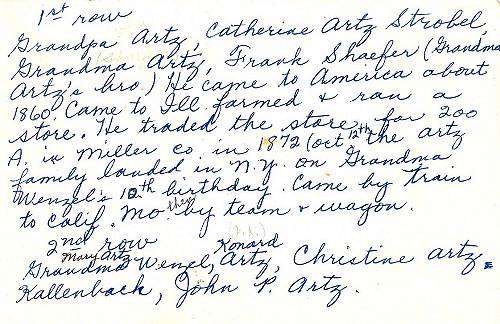 1st row
Grandpa Artz, Catherine Artz Strobel,
Grandma Artz, Frank Shaefer (Grandma
Artz's bro.) He came to America about
1860. Came to Ill. farmed & ran a
store. He traded the store for 200
A. in Miller co. in 1872 (oct 12th) the Artz
family landed in N.Y. on Grandma
Wenzel's 10th birthday. Came by train
to Calif. Mo they by team & wagon.
2nd row
Mary Artz Konard
Grandma Wenzel, Artz, Christine Artz
Kallenback, John P. Artz.